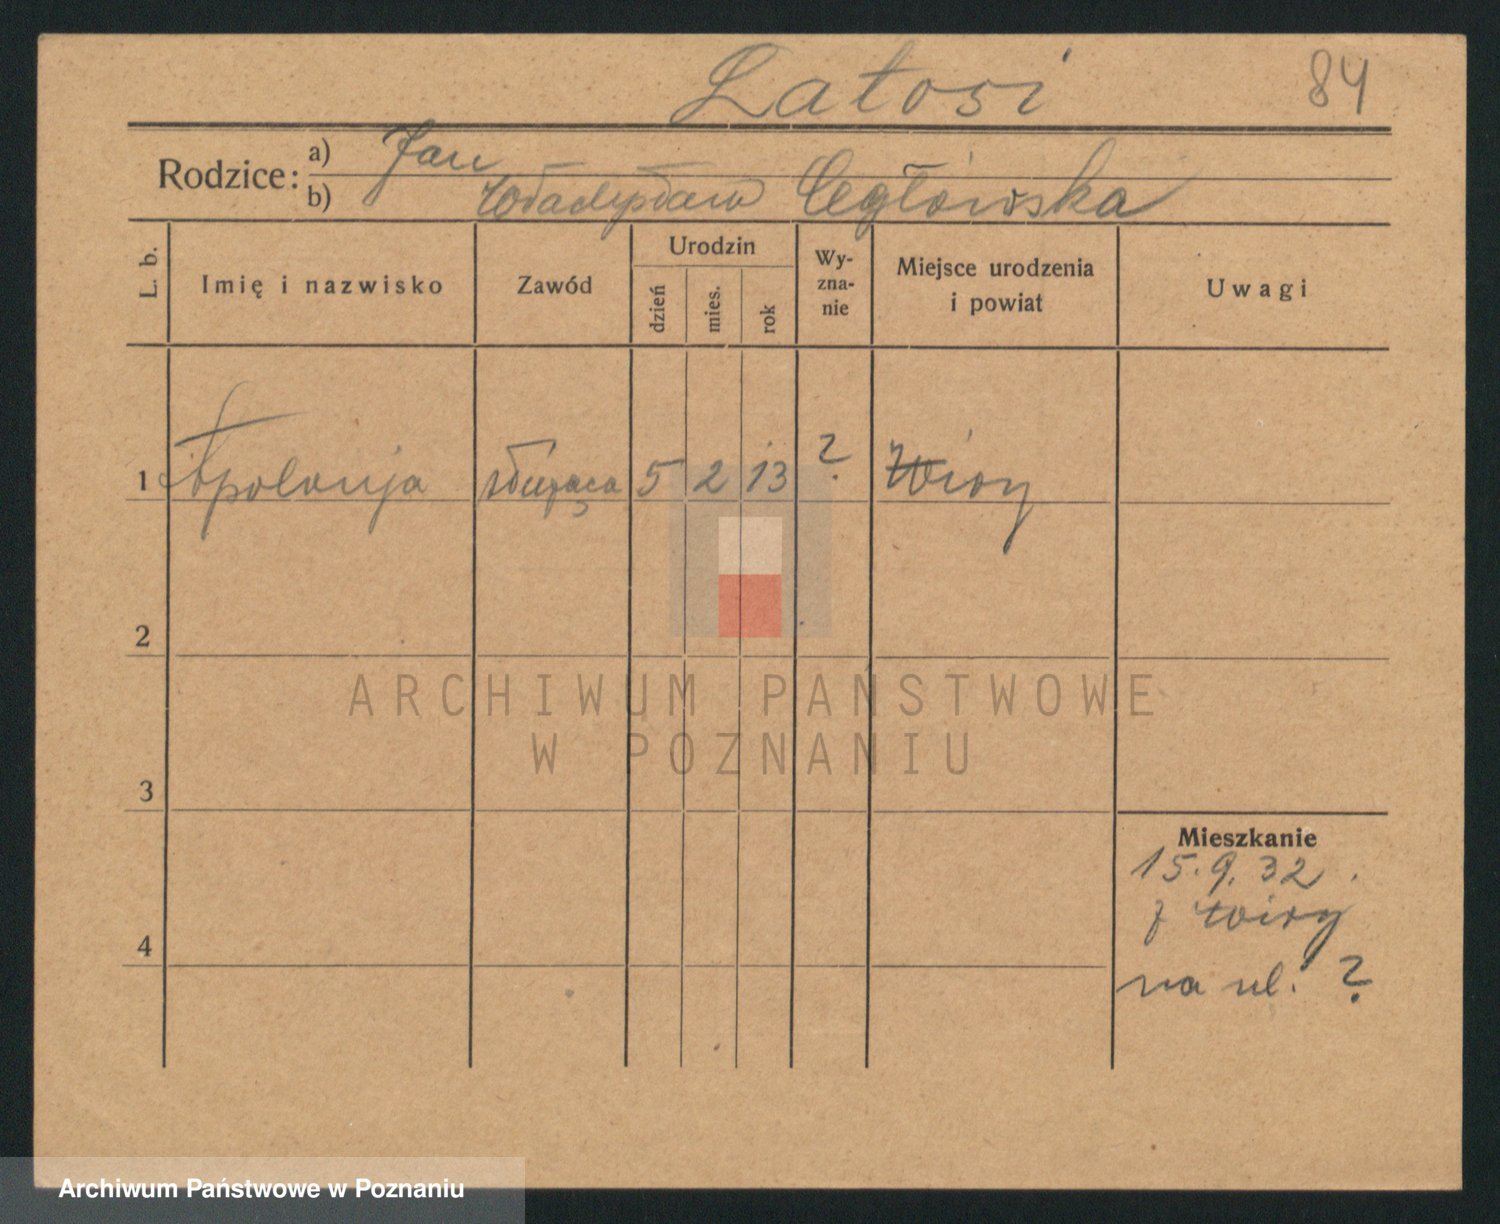 Latosi 84
Rodzice: a) Jan
b) Władysława Cegłowska
L. b. Imię i nazwisko Zawód Urodzin dzień mies. rok Wy-zna-nie Miejsce urodzenia i powiat Uwagi
1 Apolonja służąca 5 2 13 ? Wiry
2
3
Mieszkanie
15. 9. 32.
z Wiry
4
na ul. ?
ARCHIWUM PAŃSTWOWE
W POZNANIU
Archiwum Państwowe w Poznaniu